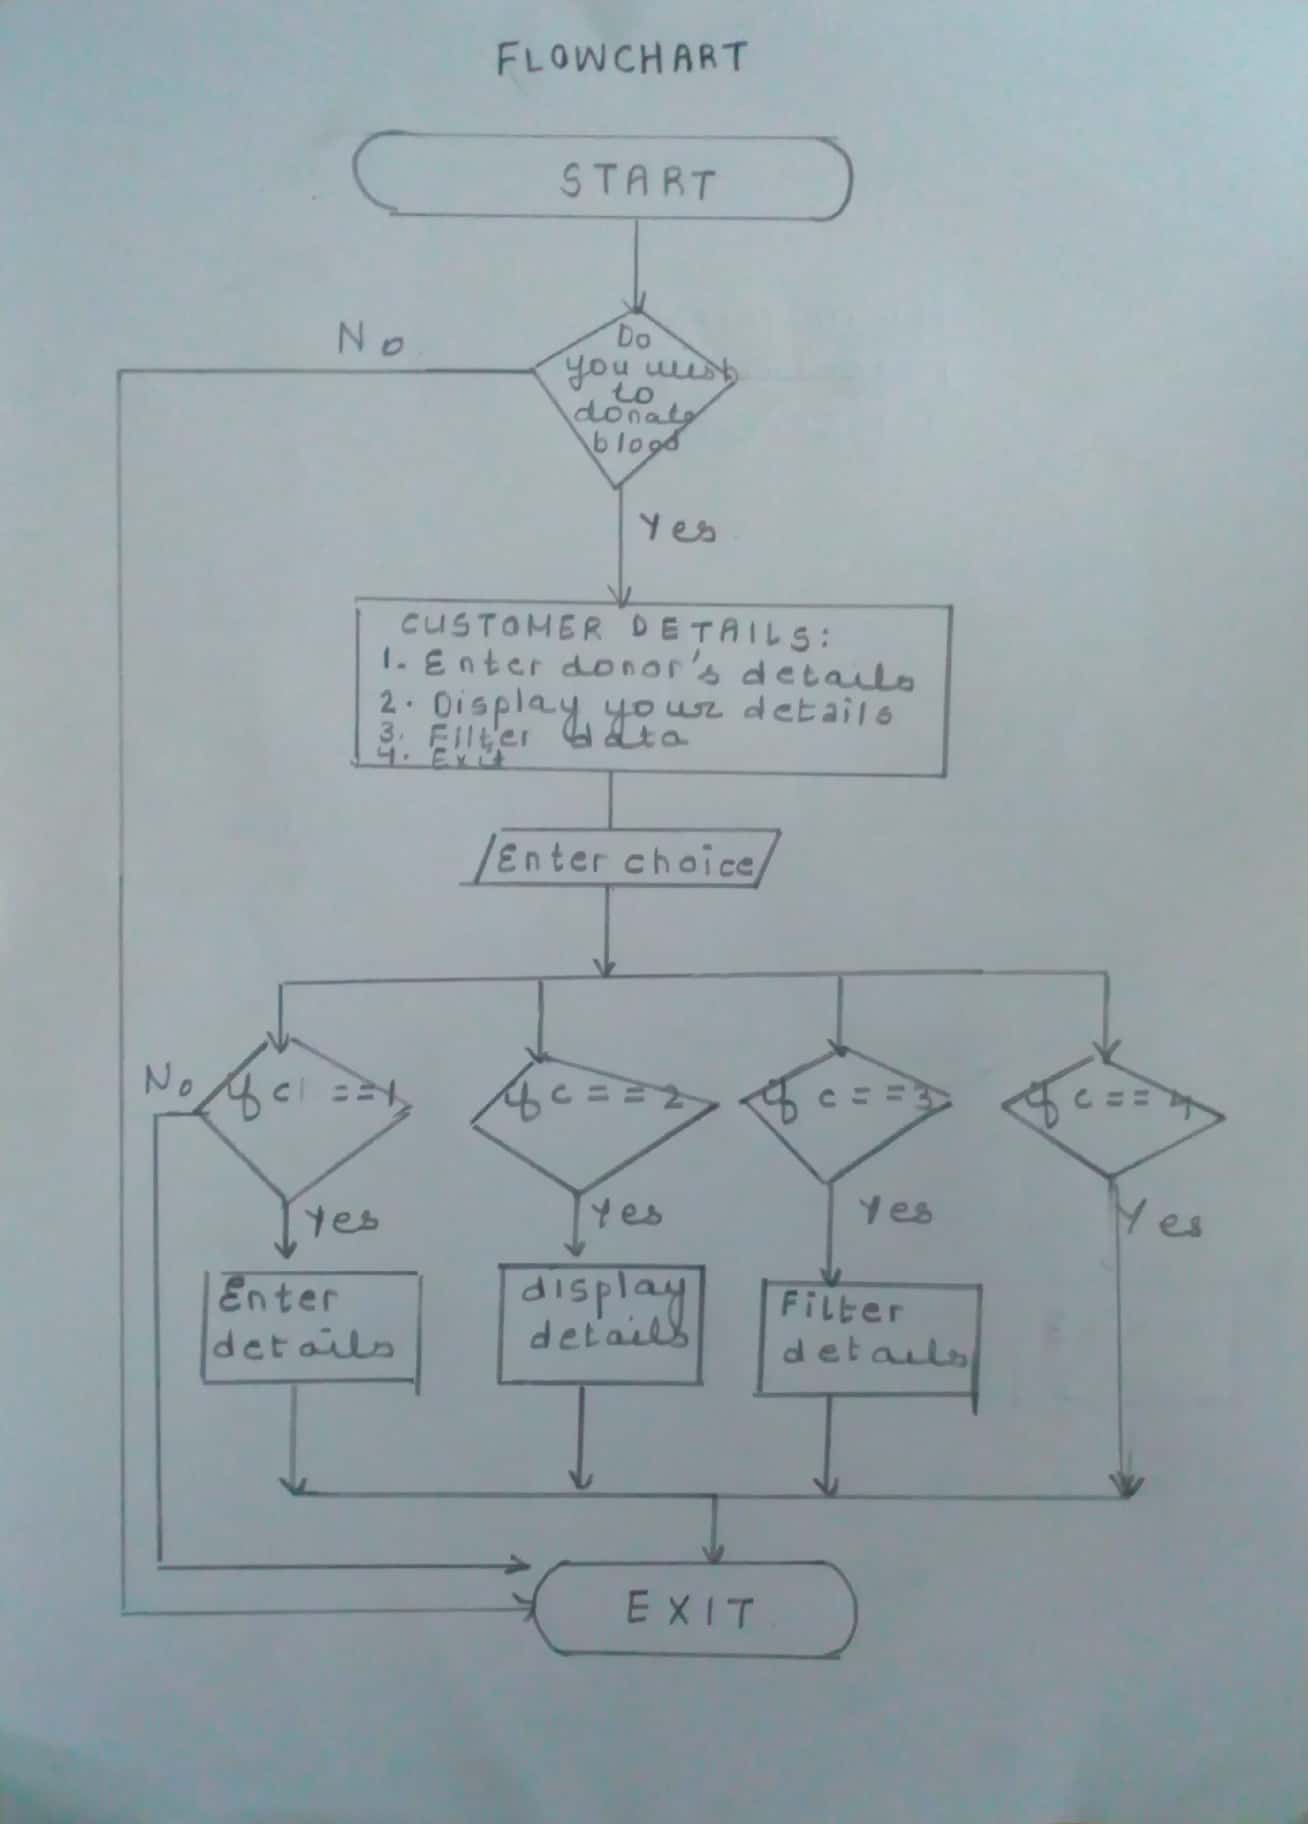 FLOWCHART
START
No
Do
you wish
to
donate
blood
Yes
CUSTOMER DETAILS:
1. Enter donor's details
2. Display your details
3. Filter data
4. Exit
Enter choice
No
if c == 1
if c == 2
if c == 3
if c == 4
Yes
Yes
Yes
Yes
Enter
details
display
details
Filter
details
EXIT